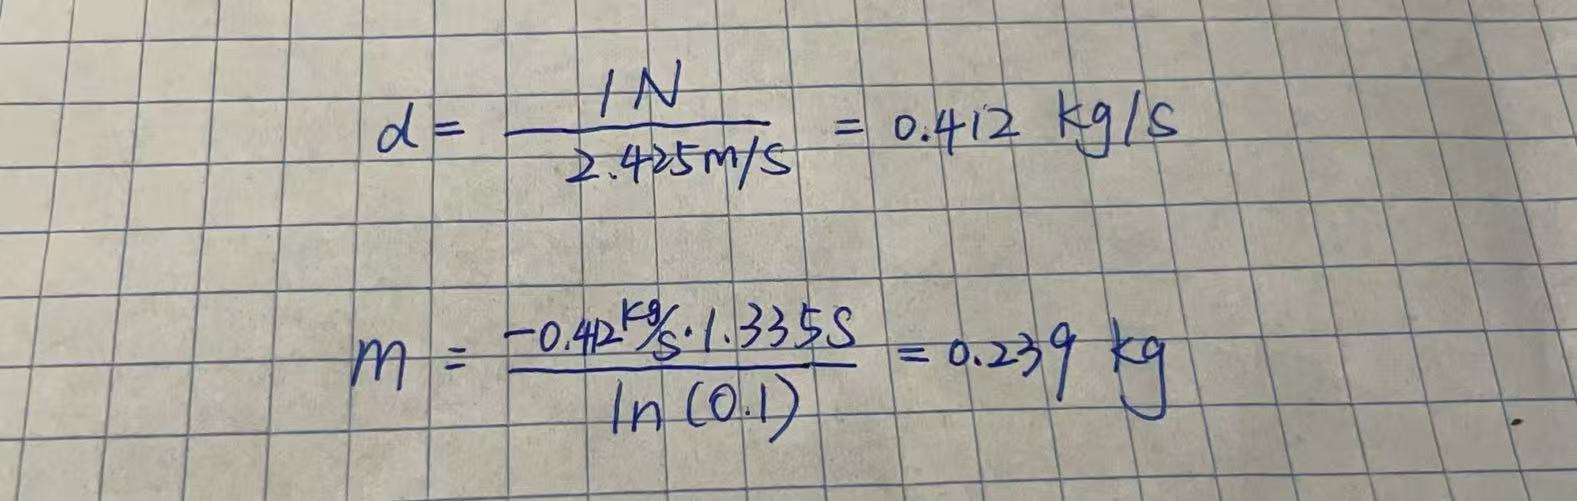 d = 1N / 2.425m/s = 0.412 kg/s
m = -0.412 kg/s · 1.335s / ln(0.1) = 0.239 kg